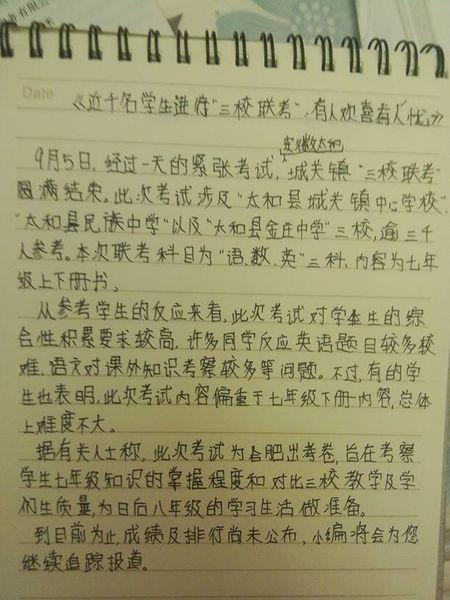 Date
《近千名学生进行“三校联考”,有人欢喜有人忧》
安徽太和
9月5日,经过一天的紧张考试,城关镇“三校联考”
圆满结束。此次考试涉及“太和县城关镇中心学校”,
“太和县民族中学”以及“太和县金庄中学”三校,逾三千
人参考。本次联考科目为“语、数、英”三科,内容为七年
级上下册书。
从参考学生的反应来看,此次考试对学生的综
合性积累要求较高,许多同学反应英语题目较多较
难,语文对课外知识考察较多等问题。不过,有的学
生也表明,此次考试内容偏重于七年级下册内容,总体
上难度不大。
据有关人士称,此次考试为合肥出卷,旨在考察
学生七年级知识的掌握程度和对比三校教学及学
们生质量,为日后八年级的学习生活做准备。
到目前为止,成绩及排行尚未公布,小编将会为您
继续追踪报道。